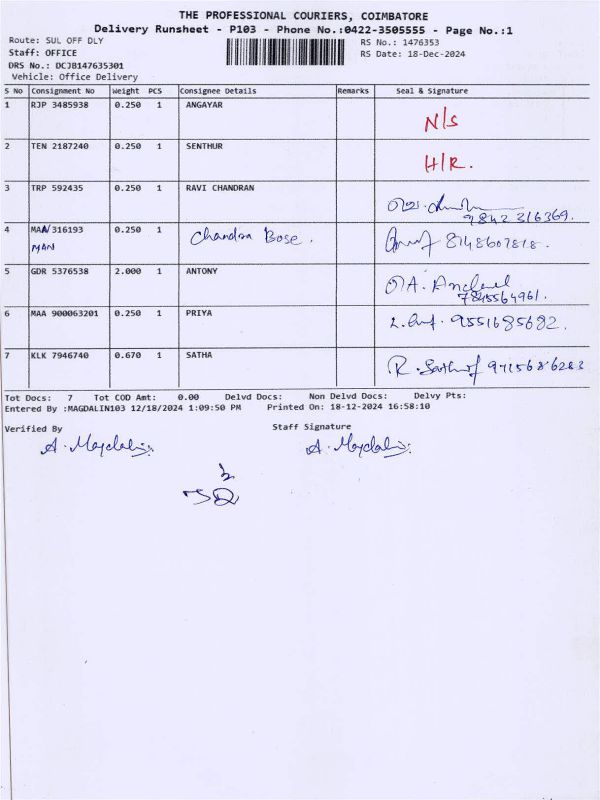 THE PROFESSIONAL COURIERS, COIMBATORE
Delivery Runsheet - P103 - Phone No.:0422-3505555 - Page No.:1
Route: SUL OFF DLY RS No.: 1476353
Staff: OFFICE RS Date: 18-Dec-2024
DRS No.: DCJB147635301
Vehicle: Office Delivery
S No Consignment No Weight PCS Consignee Details Remarks Seal & Signature
1 RJP 3485938 0.250 1 ANGAYAR N/S
2 TEN 2187240 0.250 1 SENTHUR H/R.
3 TRP 592435 0.250 1 RAVI CHANDRAN
9842 316369.
4 MAN 316193 0.250 1 Chandra Bose. 8148607818.
MAN
5 GDR 5376538 2.000 1 ANTONY
7845564961.
6 MAA 900063201 0.250 1 PRIYA 9551685682.
7 KLK 7946740 0.670 1 SATHA R. 9715686283
Tot Docs: 7 Tot COD Amt: 0.00 Delvd Docs: Non Delvd Docs: Delvy Pts:
Entered By :MAGDALIN103 12/18/2024 1:09:50 PM Printed On: 18-12-2024 16:58:10
Verified By Staff Signature
A. Magdalin A. Magdalin